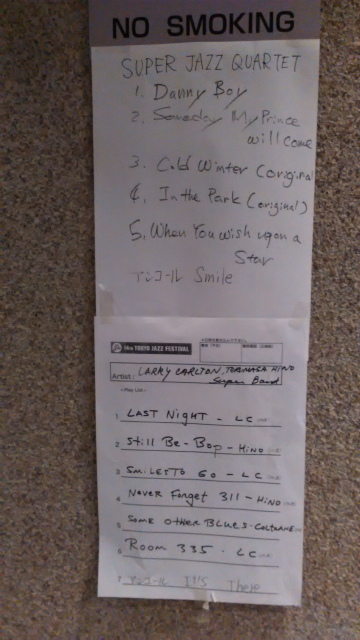 NO SMOKING
SUPER JAZZ QUARTET
1. Danny Boy
2. Someday My Prince
will come
3. Cold Winter (original
4. In the Park (original)
5. When You wish upon a
Star
アンコール Smile
TOKYO JAZZ FESTIVAL
Artist: LARRY CARLTON, TERUMASA HINO
Super Band
<Play List>
1 LAST NIGHT - LC
2 Still Be-Bop - HINO
3 SMILES TO GO - LC
4 Never Forget 311 - HINO
5 SOME OTHER BLUES - COLTRANE
6 Room 335 - LC
7 アンコール IT'S There